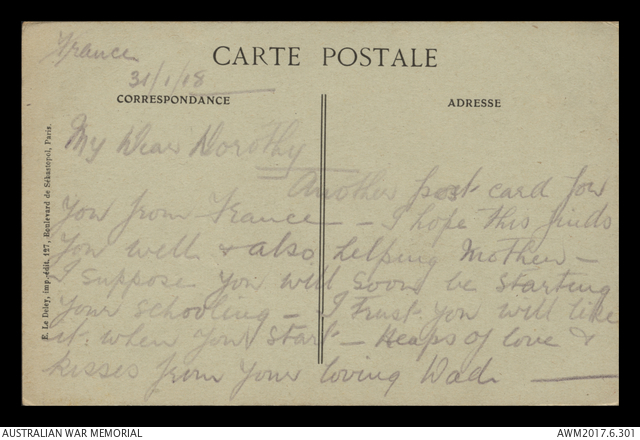 France
31/1/18
CARTE POSTALE
CORRESPONDANCE
ADRESSE
My Dear Dorothy
Another post card for
you from France - I hope this finds
you well & also helping Mother -
I suppose you will soon be starting
your schooling - I trust you will like
it when you start - Heaps of love &
kisses from your loving Dad.
E. Le Deley, imp.-édit., 127, Boulevard de Sébastopol, Paris.
AUSTRALIAN WAR MEMORIAL
AWM2017.6.301